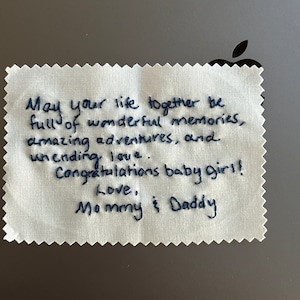 May your life together be
full of wonderful memories,
amazing adventures, and
unending love.
Congratulations baby girl!
Love,
Mommy & Daddy